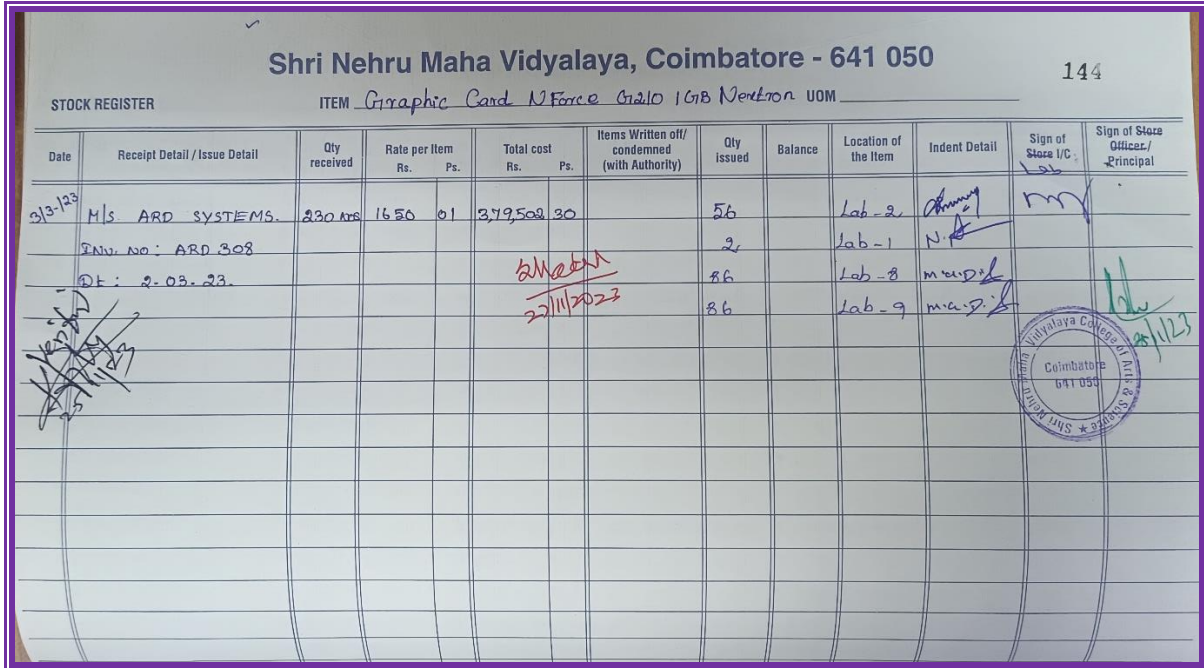 Shri Nehru Maha Vidyalaya, Coimbatore - 641 050
144
STOCK REGISTER ITEM Graphic Card NForce G210 1GB Nextron UOM
Date Receipt Detail / Issue Detail Qty received Rate per Item Rs. Ps. Total cost Rs. Ps. Items Written off/ condemned (with Authority) Qty issued Balance Location of the Item Indent Detail Sign of Store I/C. Lab Sign of Store Officer./ Principal
3/3/23 M/S. ARD SYSTEMS. 230 1650 01 3,79,502 30 56 Lab-2
INV. NO: ARD 308 2 Lab-1
Dt: 2-03-23. 86 Lab-8
86 Lab-9
/11/2023
25/11/23
/11/23
Shri Nehru Maha Vidyalaya College of Arts & Science
Coimbatore
641 050